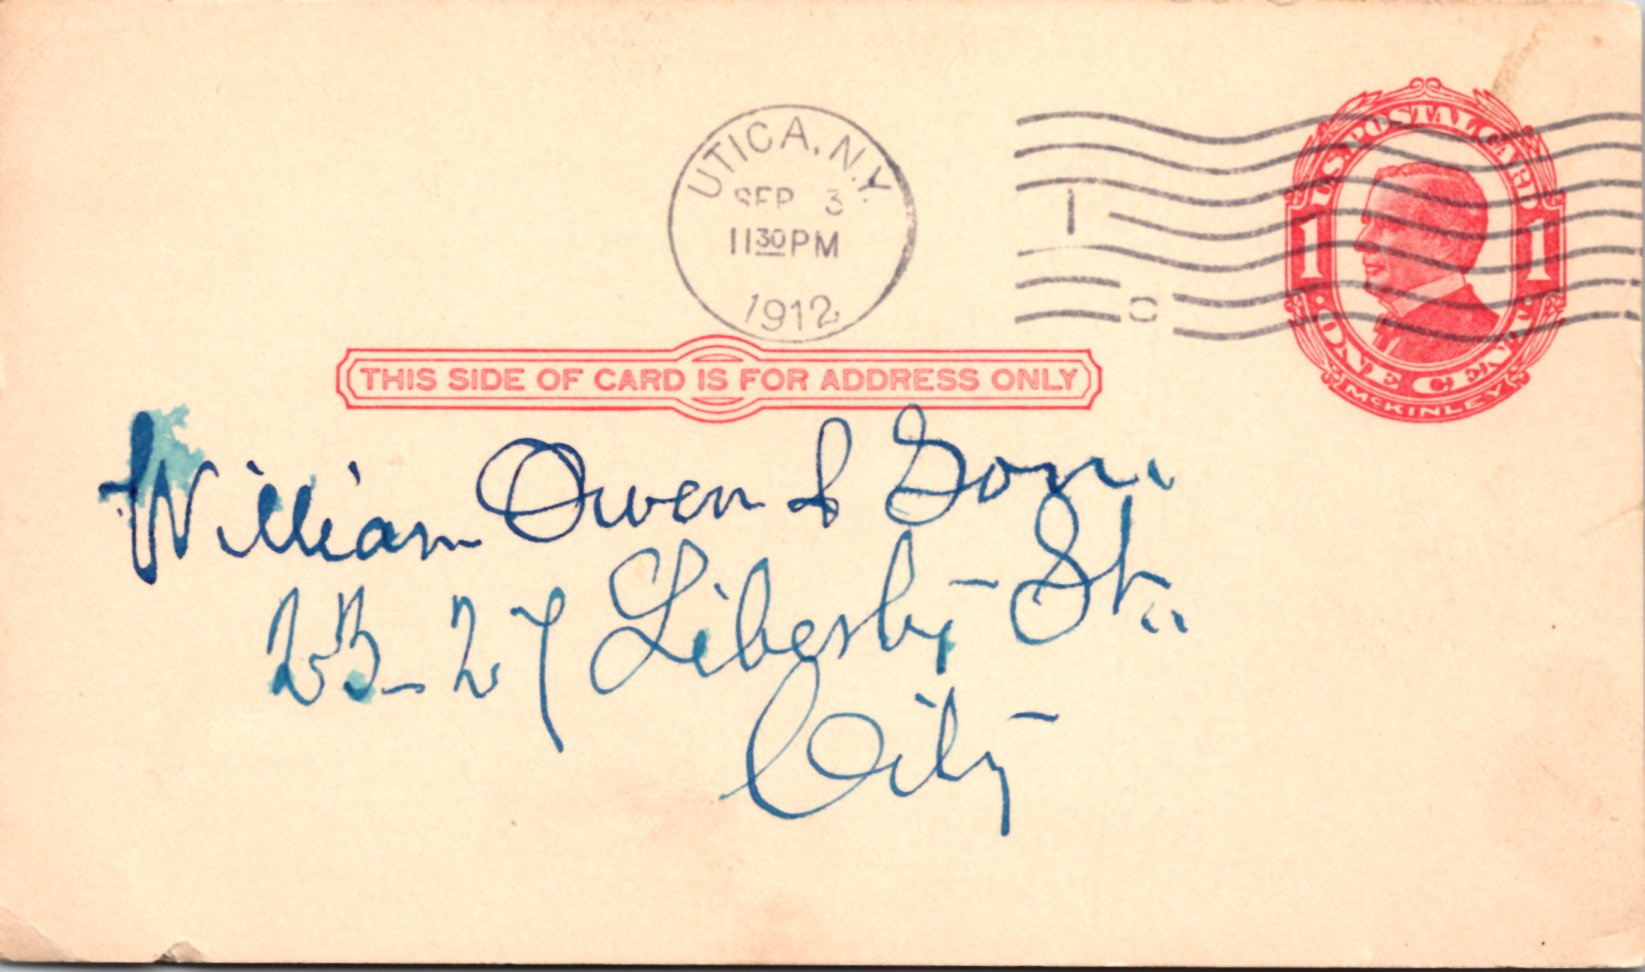 UTICA, N.Y.
SEP 3
11 30 PM
1912
1
U.S. POSTAL CARD
1 1
· ONE CENT ·
McKINLEY
THIS SIDE OF CARD IS FOR ADDRESS ONLY
William Owen & Son.
23-27 Liberty St..
City